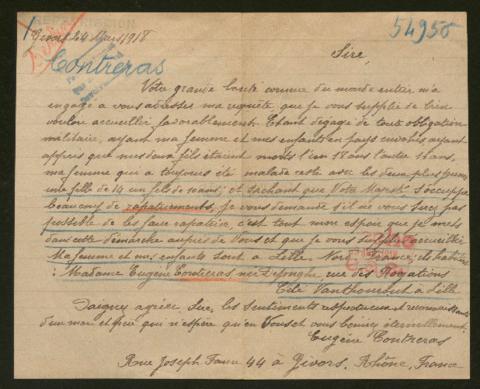 Givors 24 Mars 1918
54950
Sire,
Contreras
Votre grande bonté connue du monde entier m'a
engagé a vous adresser ma requête, que je vous supplie de bien
vouloir accueillir favorablement. Etant dégagé de toute obligation
militaire, ayant ma femme et mes enfants en pays envahis ayant
appris que mes deux fils étaient morts l'un 18 ans l'autre 11 ans,
ma femme qui a toujours été malade reste avec les deux plus jeunes,
une fille de 14 un fils de 10 ans; et sachant que Votre Majesté s'occupe
beaucoup de rapatriements, Je vous demande s'il ne vous serez pas
possible de les faire rapatrier, c'est tout mon espoir que je mets
dans cette démarche auprès de Vous et que je vous supplie accueillir
Ma femme et mes enfants sont à Lille. Nord France, ils habitent
: Madame Eugène Contreras née rue des Rogations
Cité Vanthournout à Lille
Daignez agréer, Sire, les sentiments respectueux et reconnaissants
d'un mari et père qui n'espère qu'en Vous et vous bénira éternellement.
Eugène Contreras
Rue Joseph Faure 44 à Givors. Rhône, France